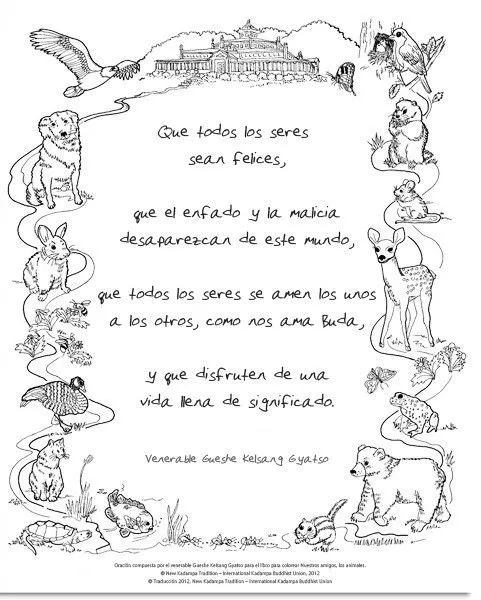 Que todos los seres
sean felices,
que el enfado y la malicia
desaparezcan de este mundo,
que todos los seres se amen los unos
a los otros, como nos ama Buda,
y que disfruten de una
vida llena de significado.
Venerable Gueshe Kelsang Gyatso
Oración compuesta por el venerable Gueshe Kelsang Gyatso para el libro para colorear Nuestros amigos, los animales.
© New Kadampa Tradition – International Kadampa Buddhist Union, 2012
© Traducción 2012, New Kadampa Tradition – International Kadampa Buddhist Union